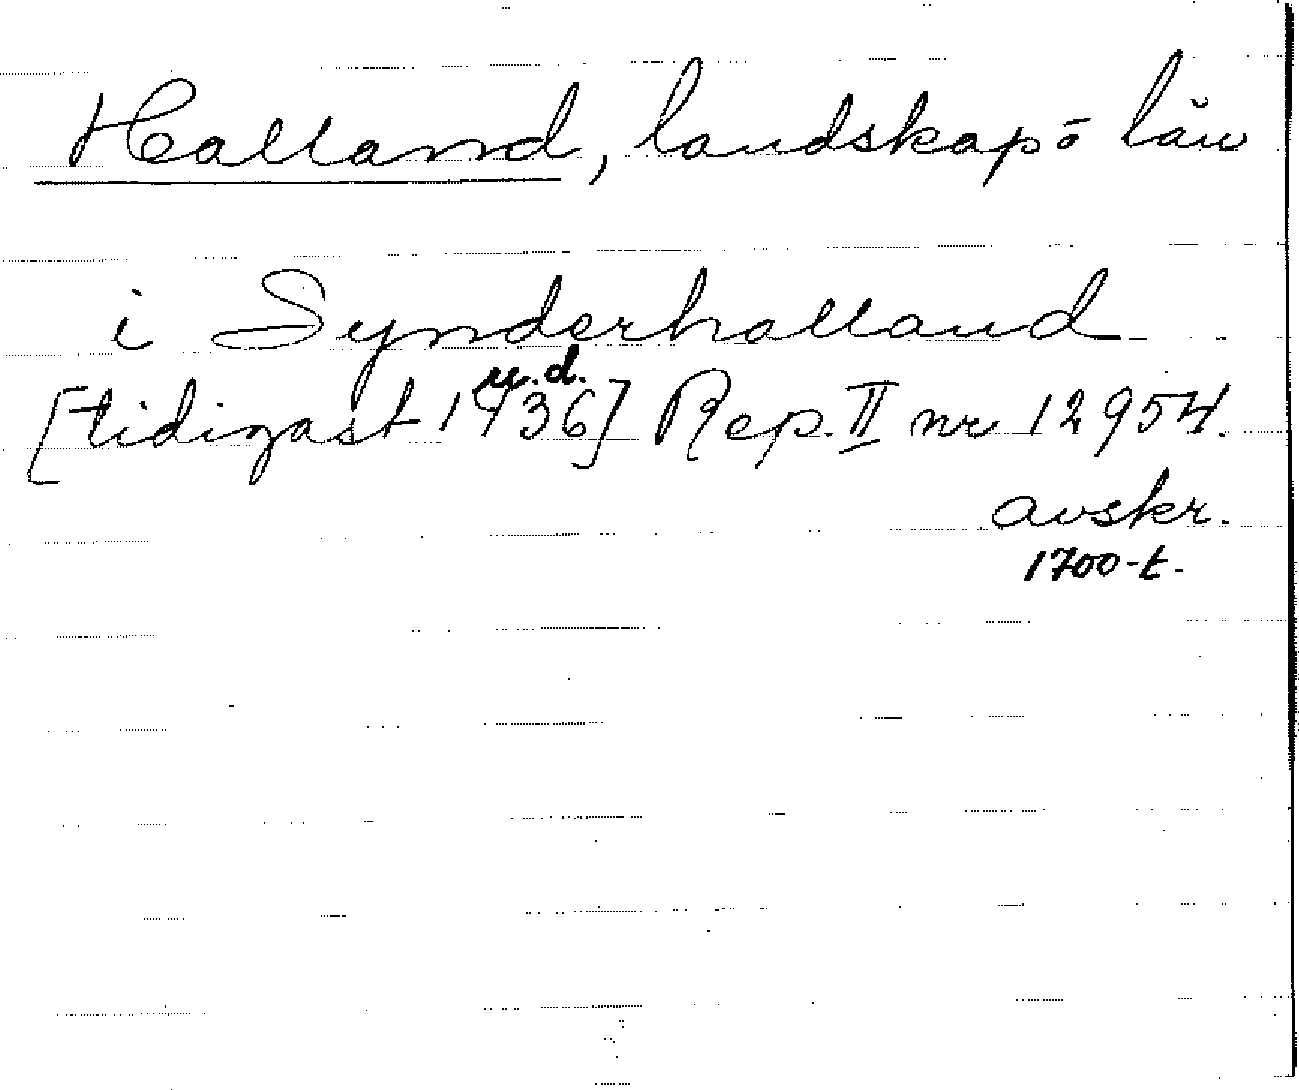 Halland, landskap ō län
i Synderhalland
u.d.
[tidigast 1436] Rep. II nr 12954.
avskr.
1700-t.